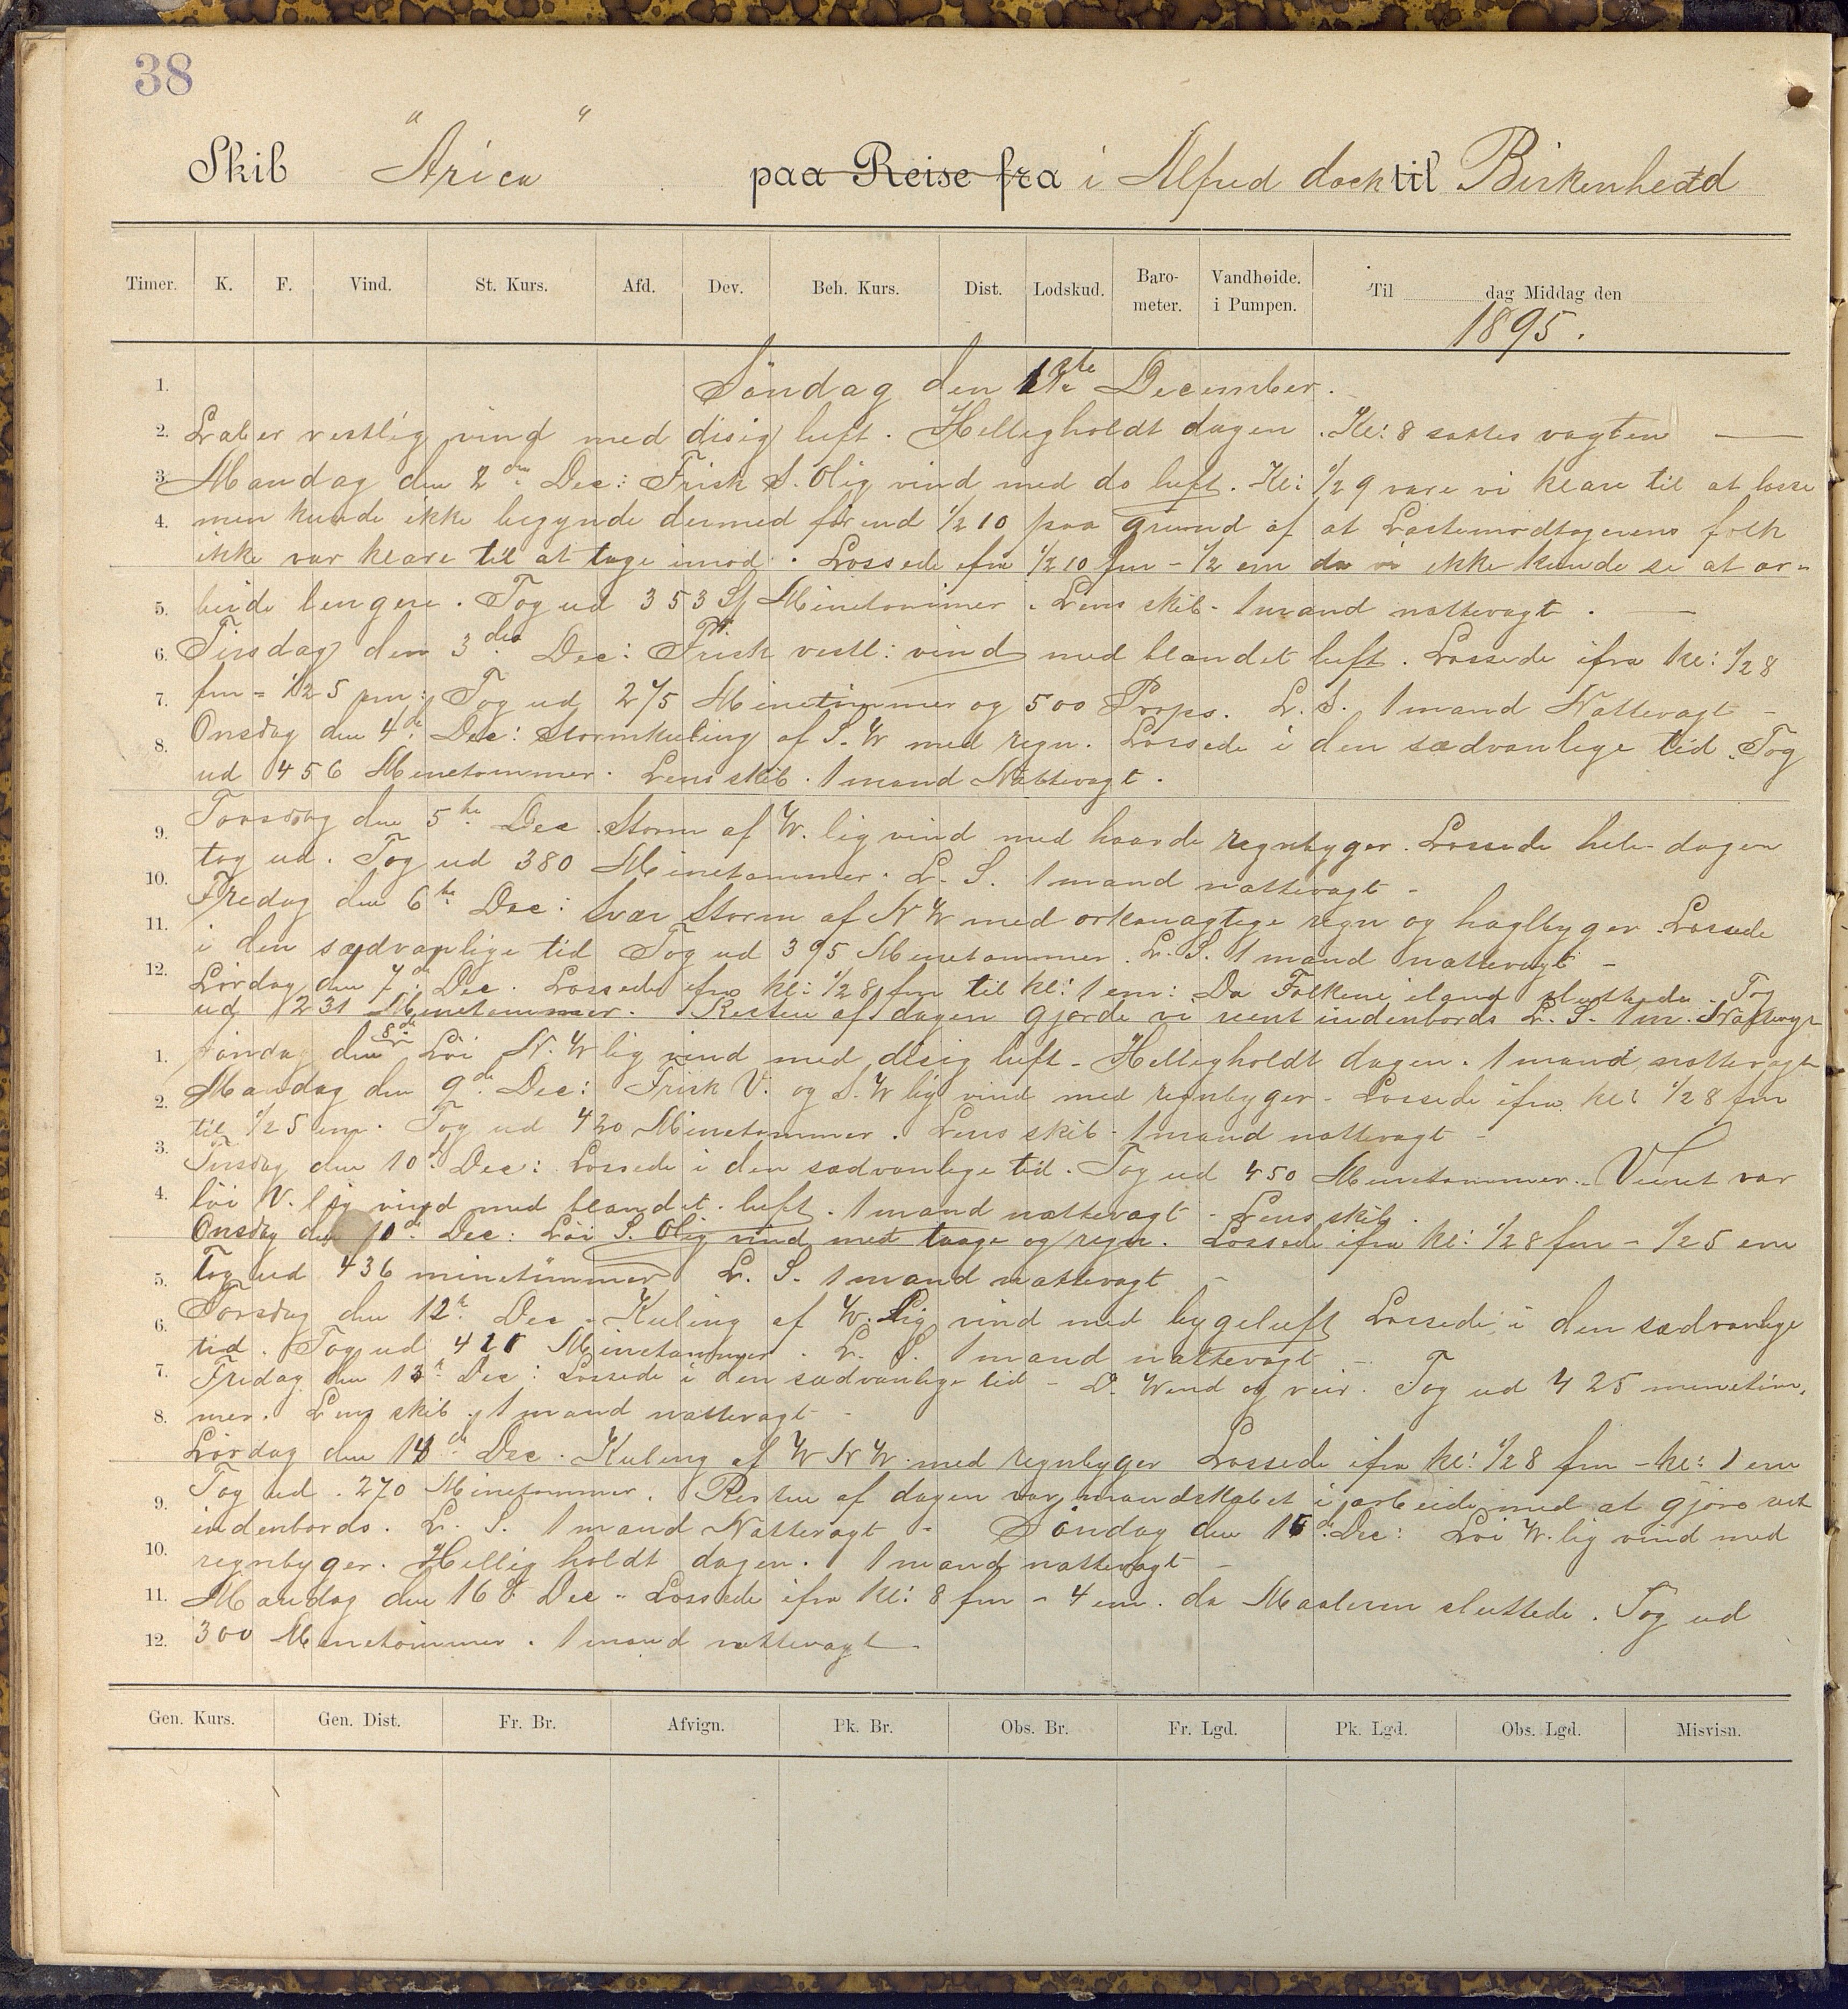 38
Skib "Arica" paa Reise fra i Alfred dock til Birkenhead
Timer. K. F. Vind. St. Kurs. Afd. Dev. Beh. Kurs. Dist. Lodskud. Baro-meter. Vandhøide. i Pumpen. Til dag Middag den
1895.
1. Söndag den 1ste December.
2. Laber vestlig vind med disig luft. Helligholdt dagen. Kl: 8 sattes vagten
3. Mandag den 2den Dec: Frisk S. Olig vind med do luft. Kl: 1/2 9 vare vi klare til at losse
4. men kunde ikke begynde dermed förend 1/2 10 paa grund af at Lastemodtagerens folk
ikke var klare til at tage imod. Lossede fra 1/2 10 fm - 1/2 em da vi ikke kunde se at ar-
5. beide lengere. Tog ud 353 St Minetömmer. Lens skib - 1 mand nattevagt.
6. Tirsdag den 3die Dec: Frisk vestl: vind med blandet luft. Lossede ifra kl: 1/2 8
7. fm - 1/2 5 em: Tog ud 275 Minetömmer og 500 Props. L. S. 1 mand Nattevagt -
8. Onsdag den 4de Dec: stormkuling af S. W med regn. Lossede i den sædvanlige tid. Tog
ud 456 Minetömmer. Lens skib. 1 mand Nattevagt.
9. Torsdag den 5te Dec. Storm af W. lig vind med haarde regnbyger. Lossede hele dagen
10. tog ud. Tog ud 380 Minetömmer. L. S. 1 mand nattevagt -
Fredag den 6te Dec: Svær Storm af N W med orkanagtige regn og haglbyger. Lossede
11. i den sædvanlige tid Tog ud 395 Minetömmer. L. S. 1 mand nattevagt -
12. Lördag den 7de Dec. Lossede fra kl: 1/2 8 fm til kl: 1 em: Da Folkene iland sluttede. Tog
ud 231 Minetömmer. Resten af dagen gjorde vi rent indenbords L. S. 1 m. Nattevagt
1. Söndag den 8de Löi N. W lig vind med disig luft - Helligholdt dagen. 1 mand nattevagt
2. Mandag den 9de Dec: Frisk V. og S. W lig vind med regnbyger - Lossede ifra kl: 1/2 8 fm
til 1/2 5 em. Tog ud 420 Minetömmer. Lens skib - 1 mand nattevagt -
3. Tirsdag den 10de Dec: Lossede i den sædvanlige tid. Tog ud 450 Minetömmer. Veiret var
4. löi V. lig vind med blandet luft. 1 mand nattevagt - Lens skib.
Onsdag den 10de Dec: Löi S. Olig vind med taage og regn. Lossede ifra kl: 1/2 8 fm - 1/2 5 em
5. Tog ud 436 minetömmer L. S. 1 mand nattevagt -
6. Torsdag den 12te Dec - Kuling af W. lig vind med bygeluft Lossede i den sædvanlige
tid. Tog ud Minetömmer. L. S. 1 mand nattevagt -
7. Fredag den 13te Dec: Lossede i den sædvanlige tid - D. Wind og veir. Tog ud 425 minetöm,
8. mer. Lens skib. 1 mand nattevagt -
Lördag den 14de Dec. Kuling af W N W. med regnbyger Lossede ifra kl: 1/2 8 fm - kl: 1 em
9. Tog ud. 270 Minetömmer. Resten af dagen var mandskabet i arbeide med at gjöre rent
indenbords. L. S. 1 mand Nattevagt - Söndag den 15de Dec: Löi W. lig vind med
10. regnbyger. Hellig holdt dagen. 1 mand nattevagt -
11. Mandag den 16de Dec - Lossede ifra kl: 8 fm - 4 em. da Maaleren sluttede. Tog ud
12. 300 Minetömmer. 1 mand nattevagt -
Gen. Kurs. Gen. Dist. Fr. Br. Afvign. Pk. Br. Obs. Br. Fr. Lgd. Pk. Lgd. Obs. Lgd. Misvisn.